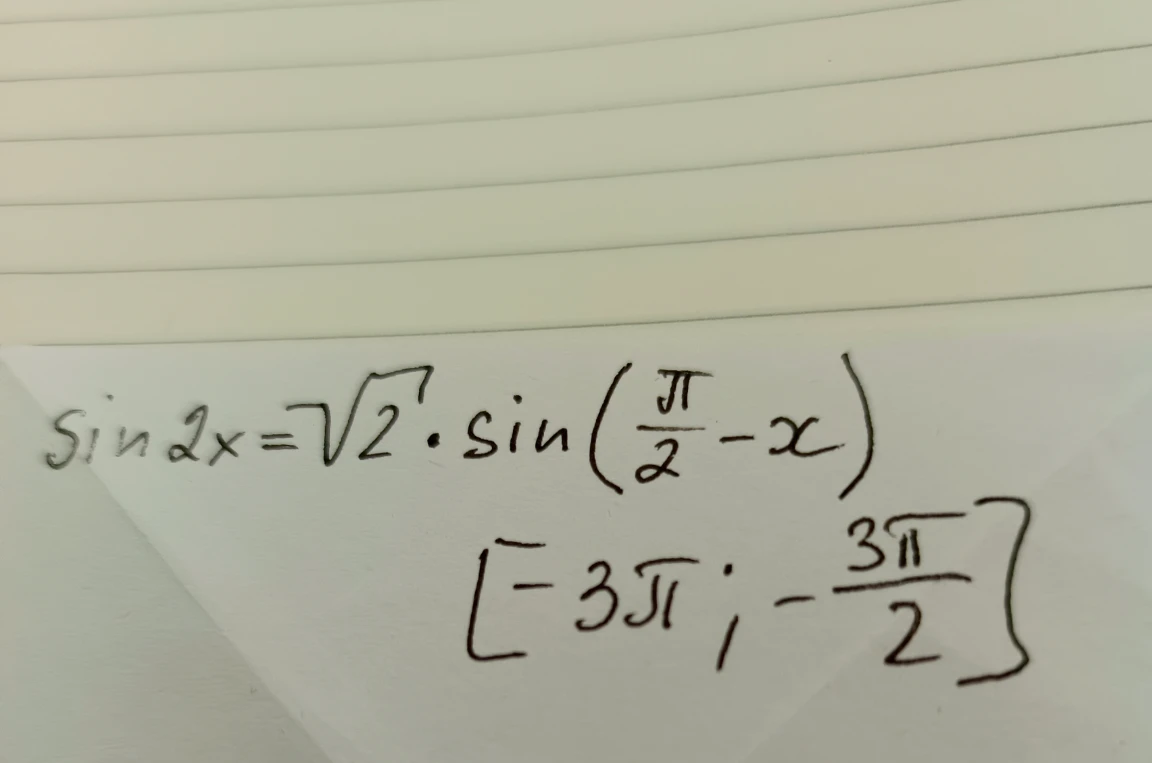 sin 2x = √2 · sin(π/2 − x)
[−3π ; −3π/2]